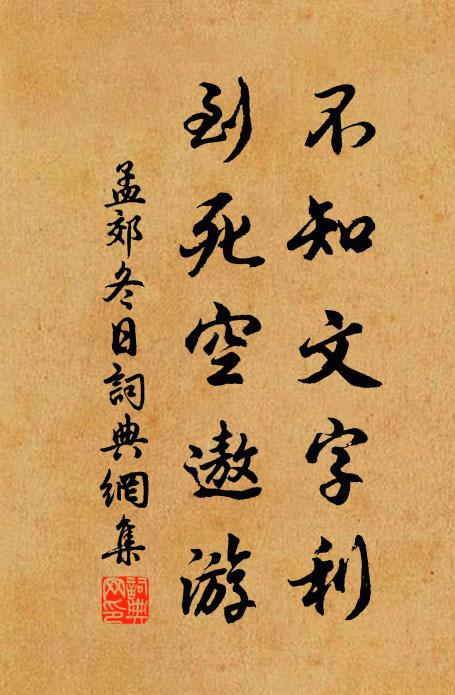 不知文字利
到死空遨游
孟郊冬日詞典網集
詞典网印